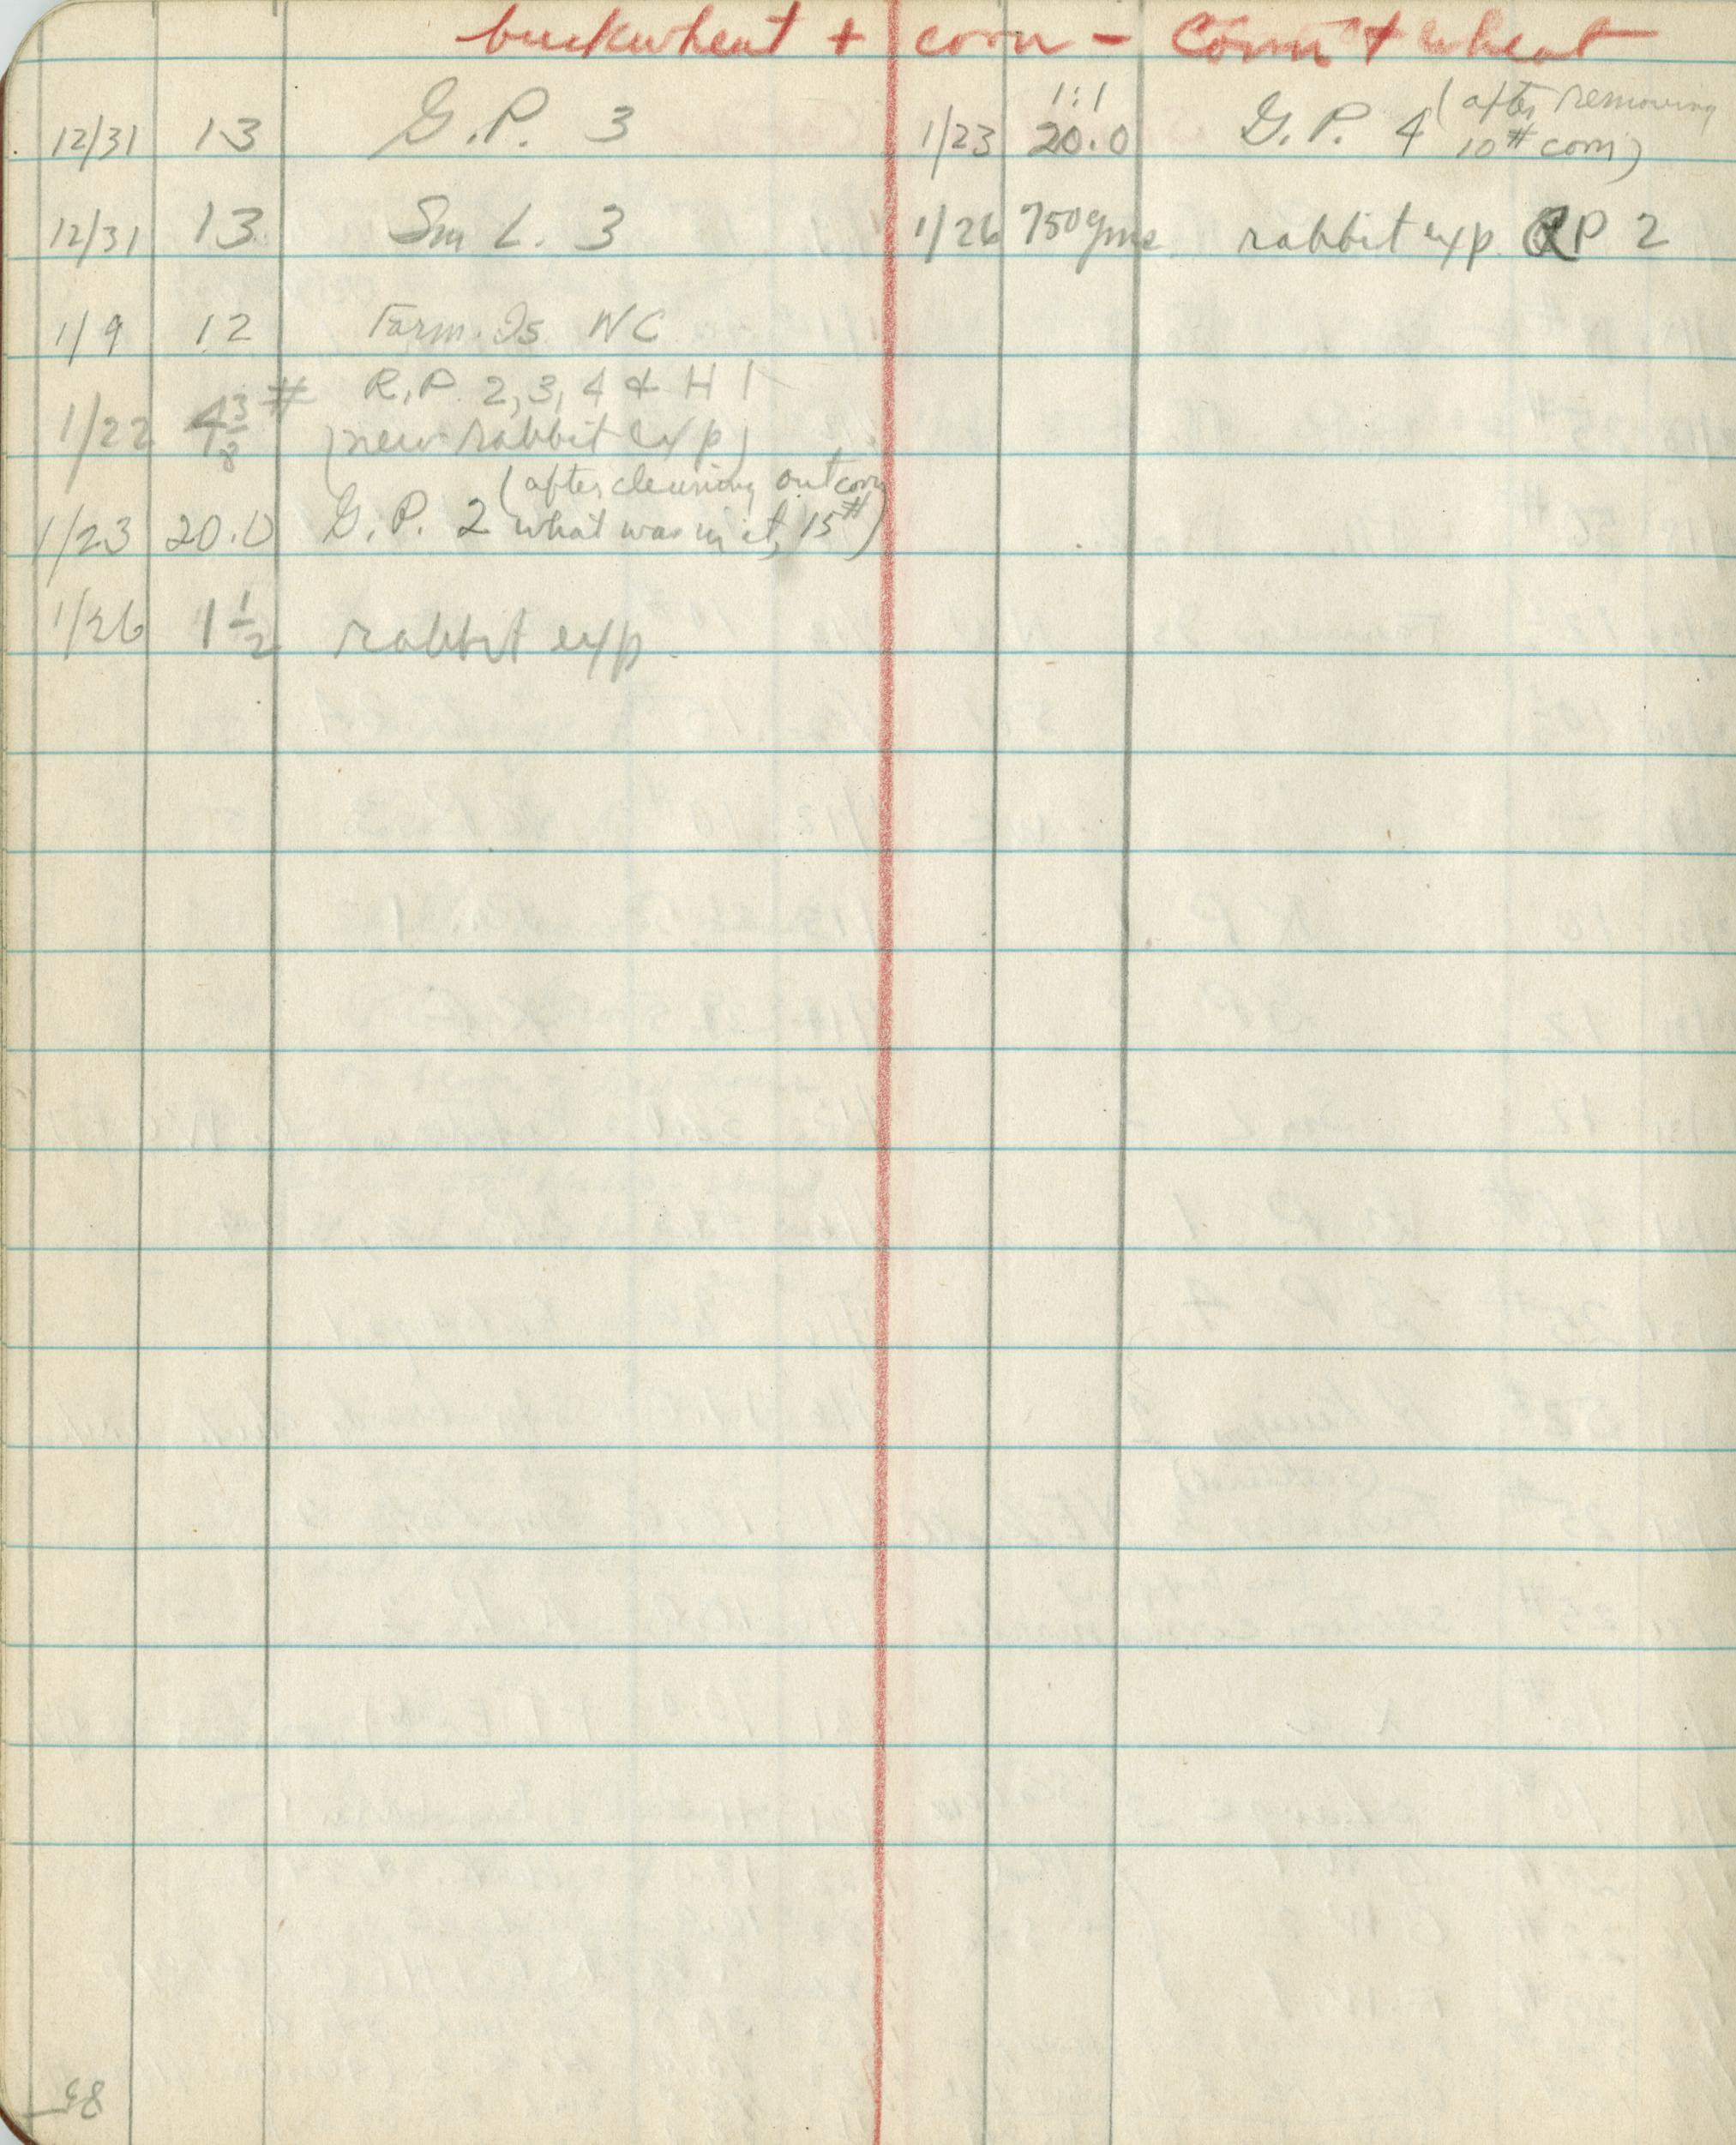 buckwheat + corn - corn + wheat
12/31 13 G.P. 3
12/31 13 Sm L. 3
1/9 12 Farm. Is. NC
1/22 4 3/8 # R.P. 2, 3, 4 & H 1
(new rabbit exp)
1/23 20.0 G.P. 2 (after cleaning out corn
what was in it, 15#)
1/26 1 1/2 rabbit exp.
1:1
1/23 20.0 G.P. 4 (after removing
10# corn)
1/26 750 gms rabbit exp. RP 2